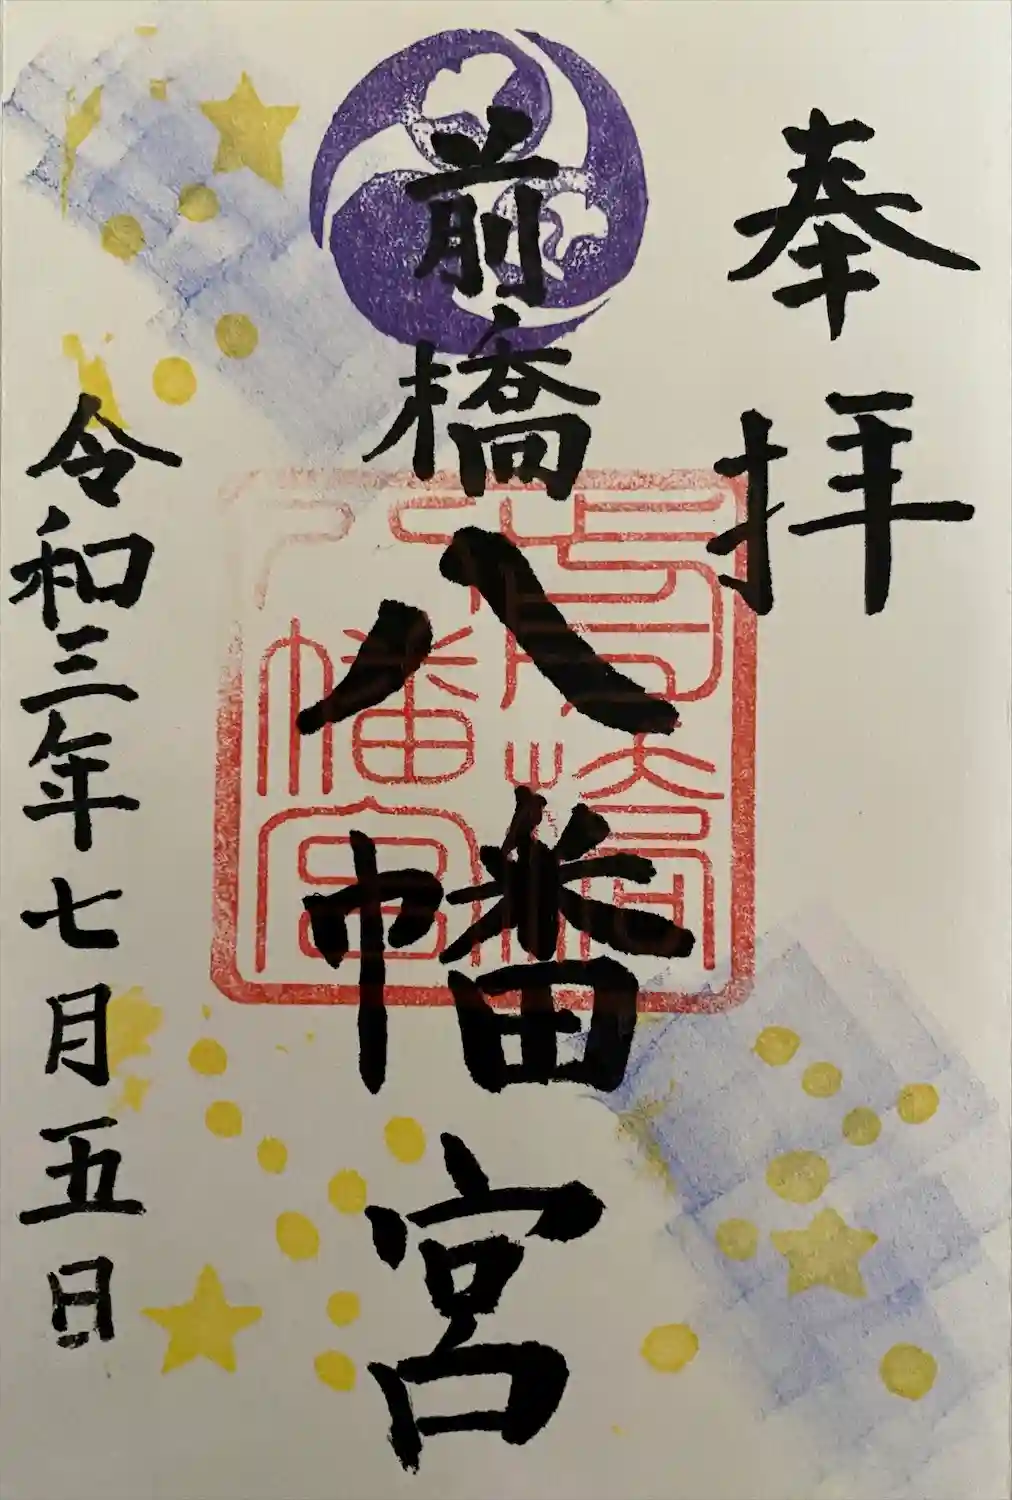 奉拝
前橋八幡宮
令和三年七月五日
前橋八幡宮